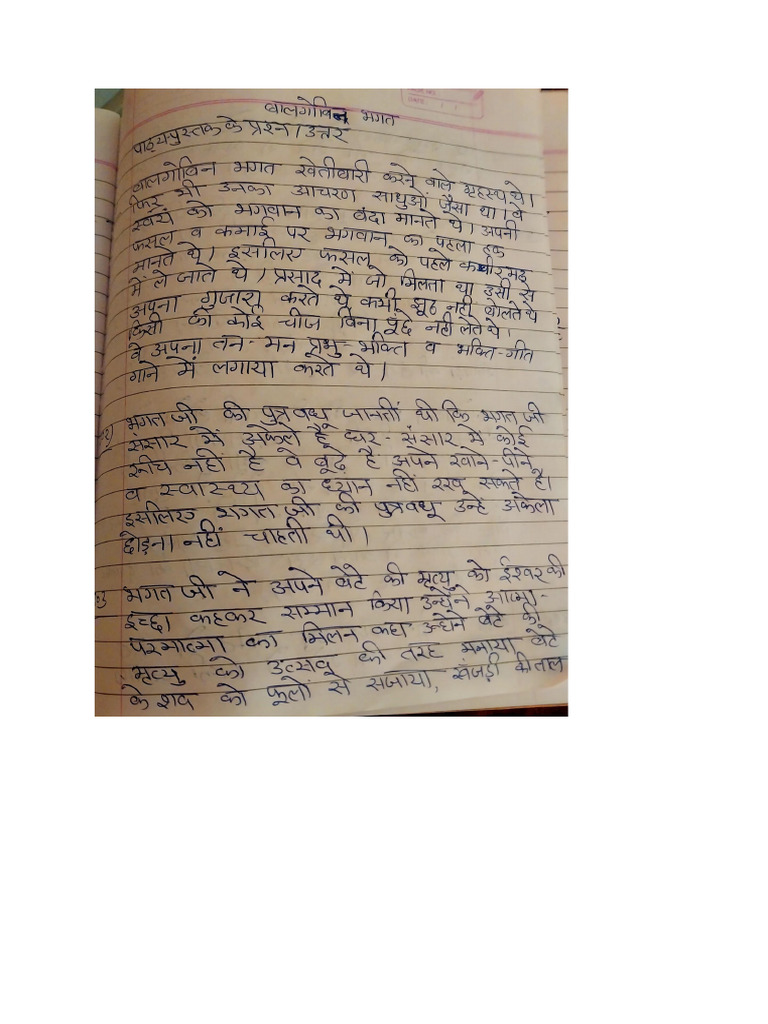 बालगोबिन भगत
पाठ्यपुस्तक के प्रश्न / उत्तर
बालगोबिन भगत खेतीबारी करने वाले गृहस्थ थे।
फिर भी उनका आचरण साधुओं जैसा था। वे
स्वयं को भगवान का बंदा मानते थे। अपनी
फसल व कमाई पर भगवान का पहला हक
मानते थे। इसलिए फसल को पहले कबीर मठ
में ले जाते थे। प्रसाद में जो मिलता था उसी से
अपना गुजारा करते थे कभी झूठ नहीं बोलते थे
किसी की कोई चीज बिना पूछे नहीं लेते थे।
वे अपना तन-मन प्रभु-भक्ति व भक्ति-गीत
गाने में लगाया करते थे।
2) भगत जी की पुत्रवधु जानतीं थी कि भगत जी
संसार में अकेले है घर-संसार में कोई
रूचि नहीं है वे बूढ़े है अपने खाने-पीने
व स्वास्थ्य का ध्यान नहीं रख सकते है।
इसलिए भगत जी की पुत्रवधू उन्हे अकेला
छोड़ना नहीं चाहती थी।
3 भगत जी ने अपने बेटे की मृत्यु को ईश्वर की
इच्छा कहकर सम्मान किया उन्होंने आत्मा-
परमात्मा का मिलन कहा उन्होंने बेटे की
मृत्यु को उत्सव की तरह मनाया, बेटे
के शव को फूलों से सजाया, खंजड़ी की ताल